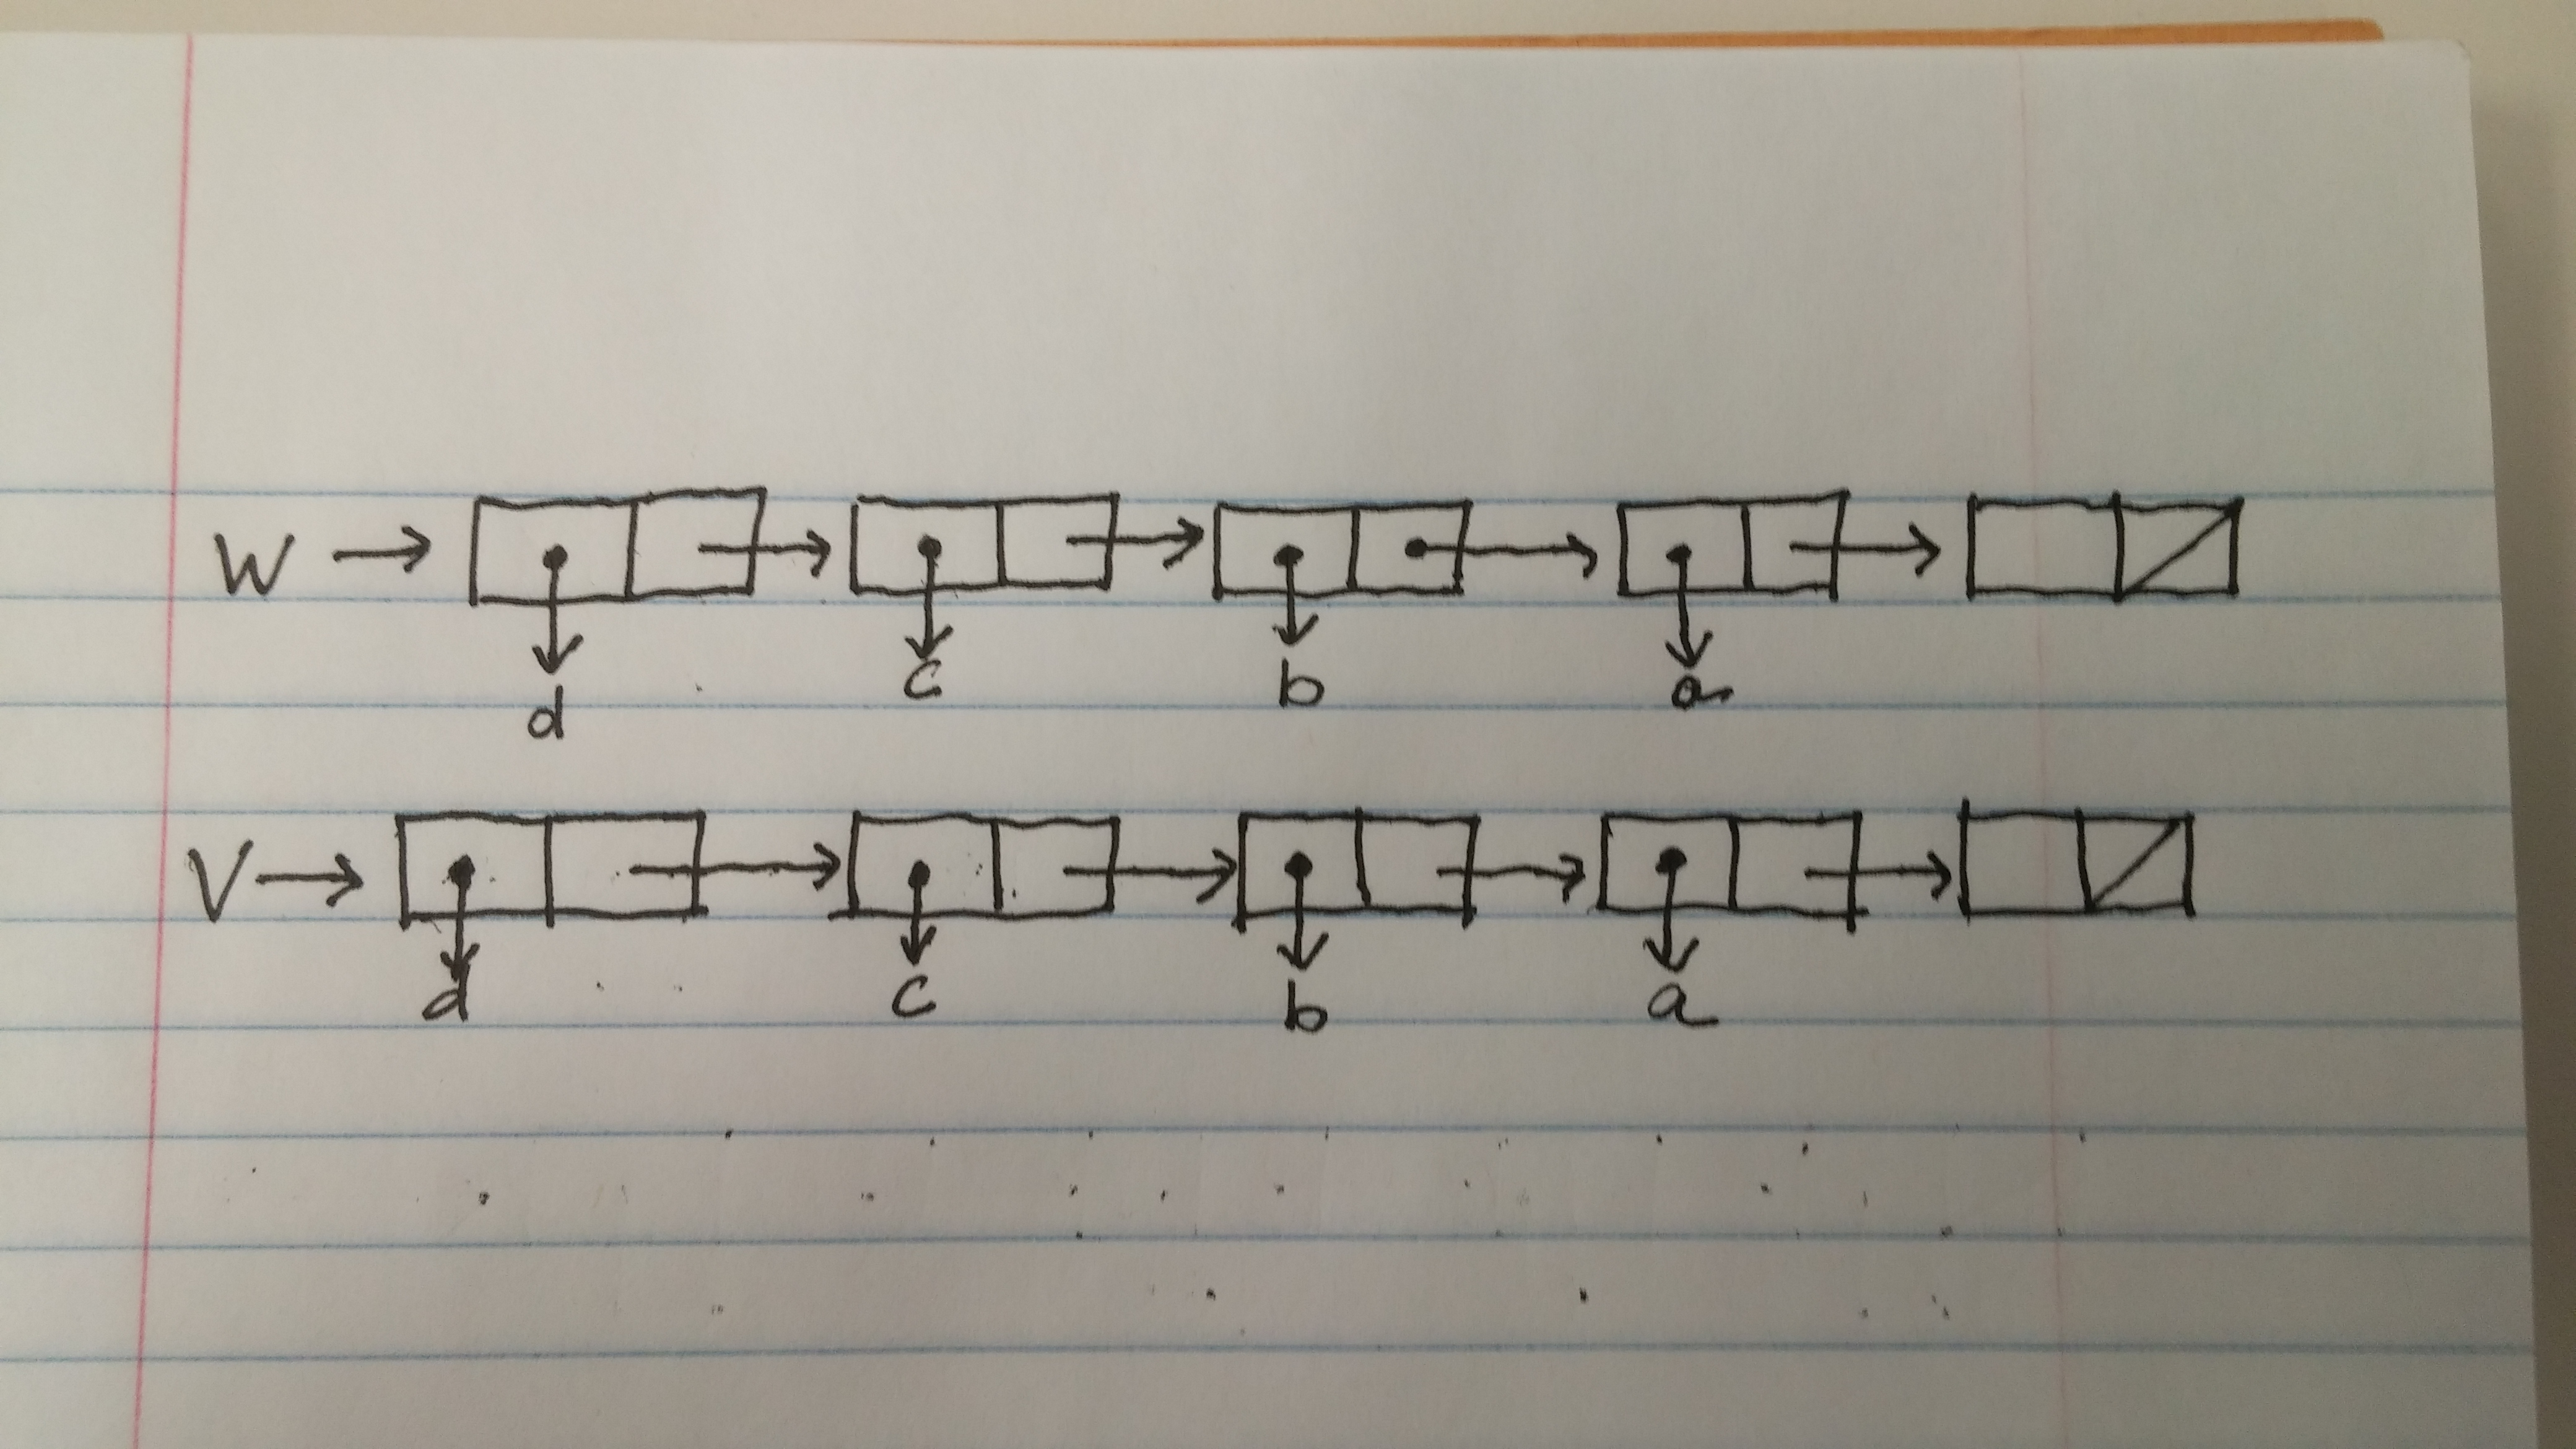 W
d c b a
V
d c b a